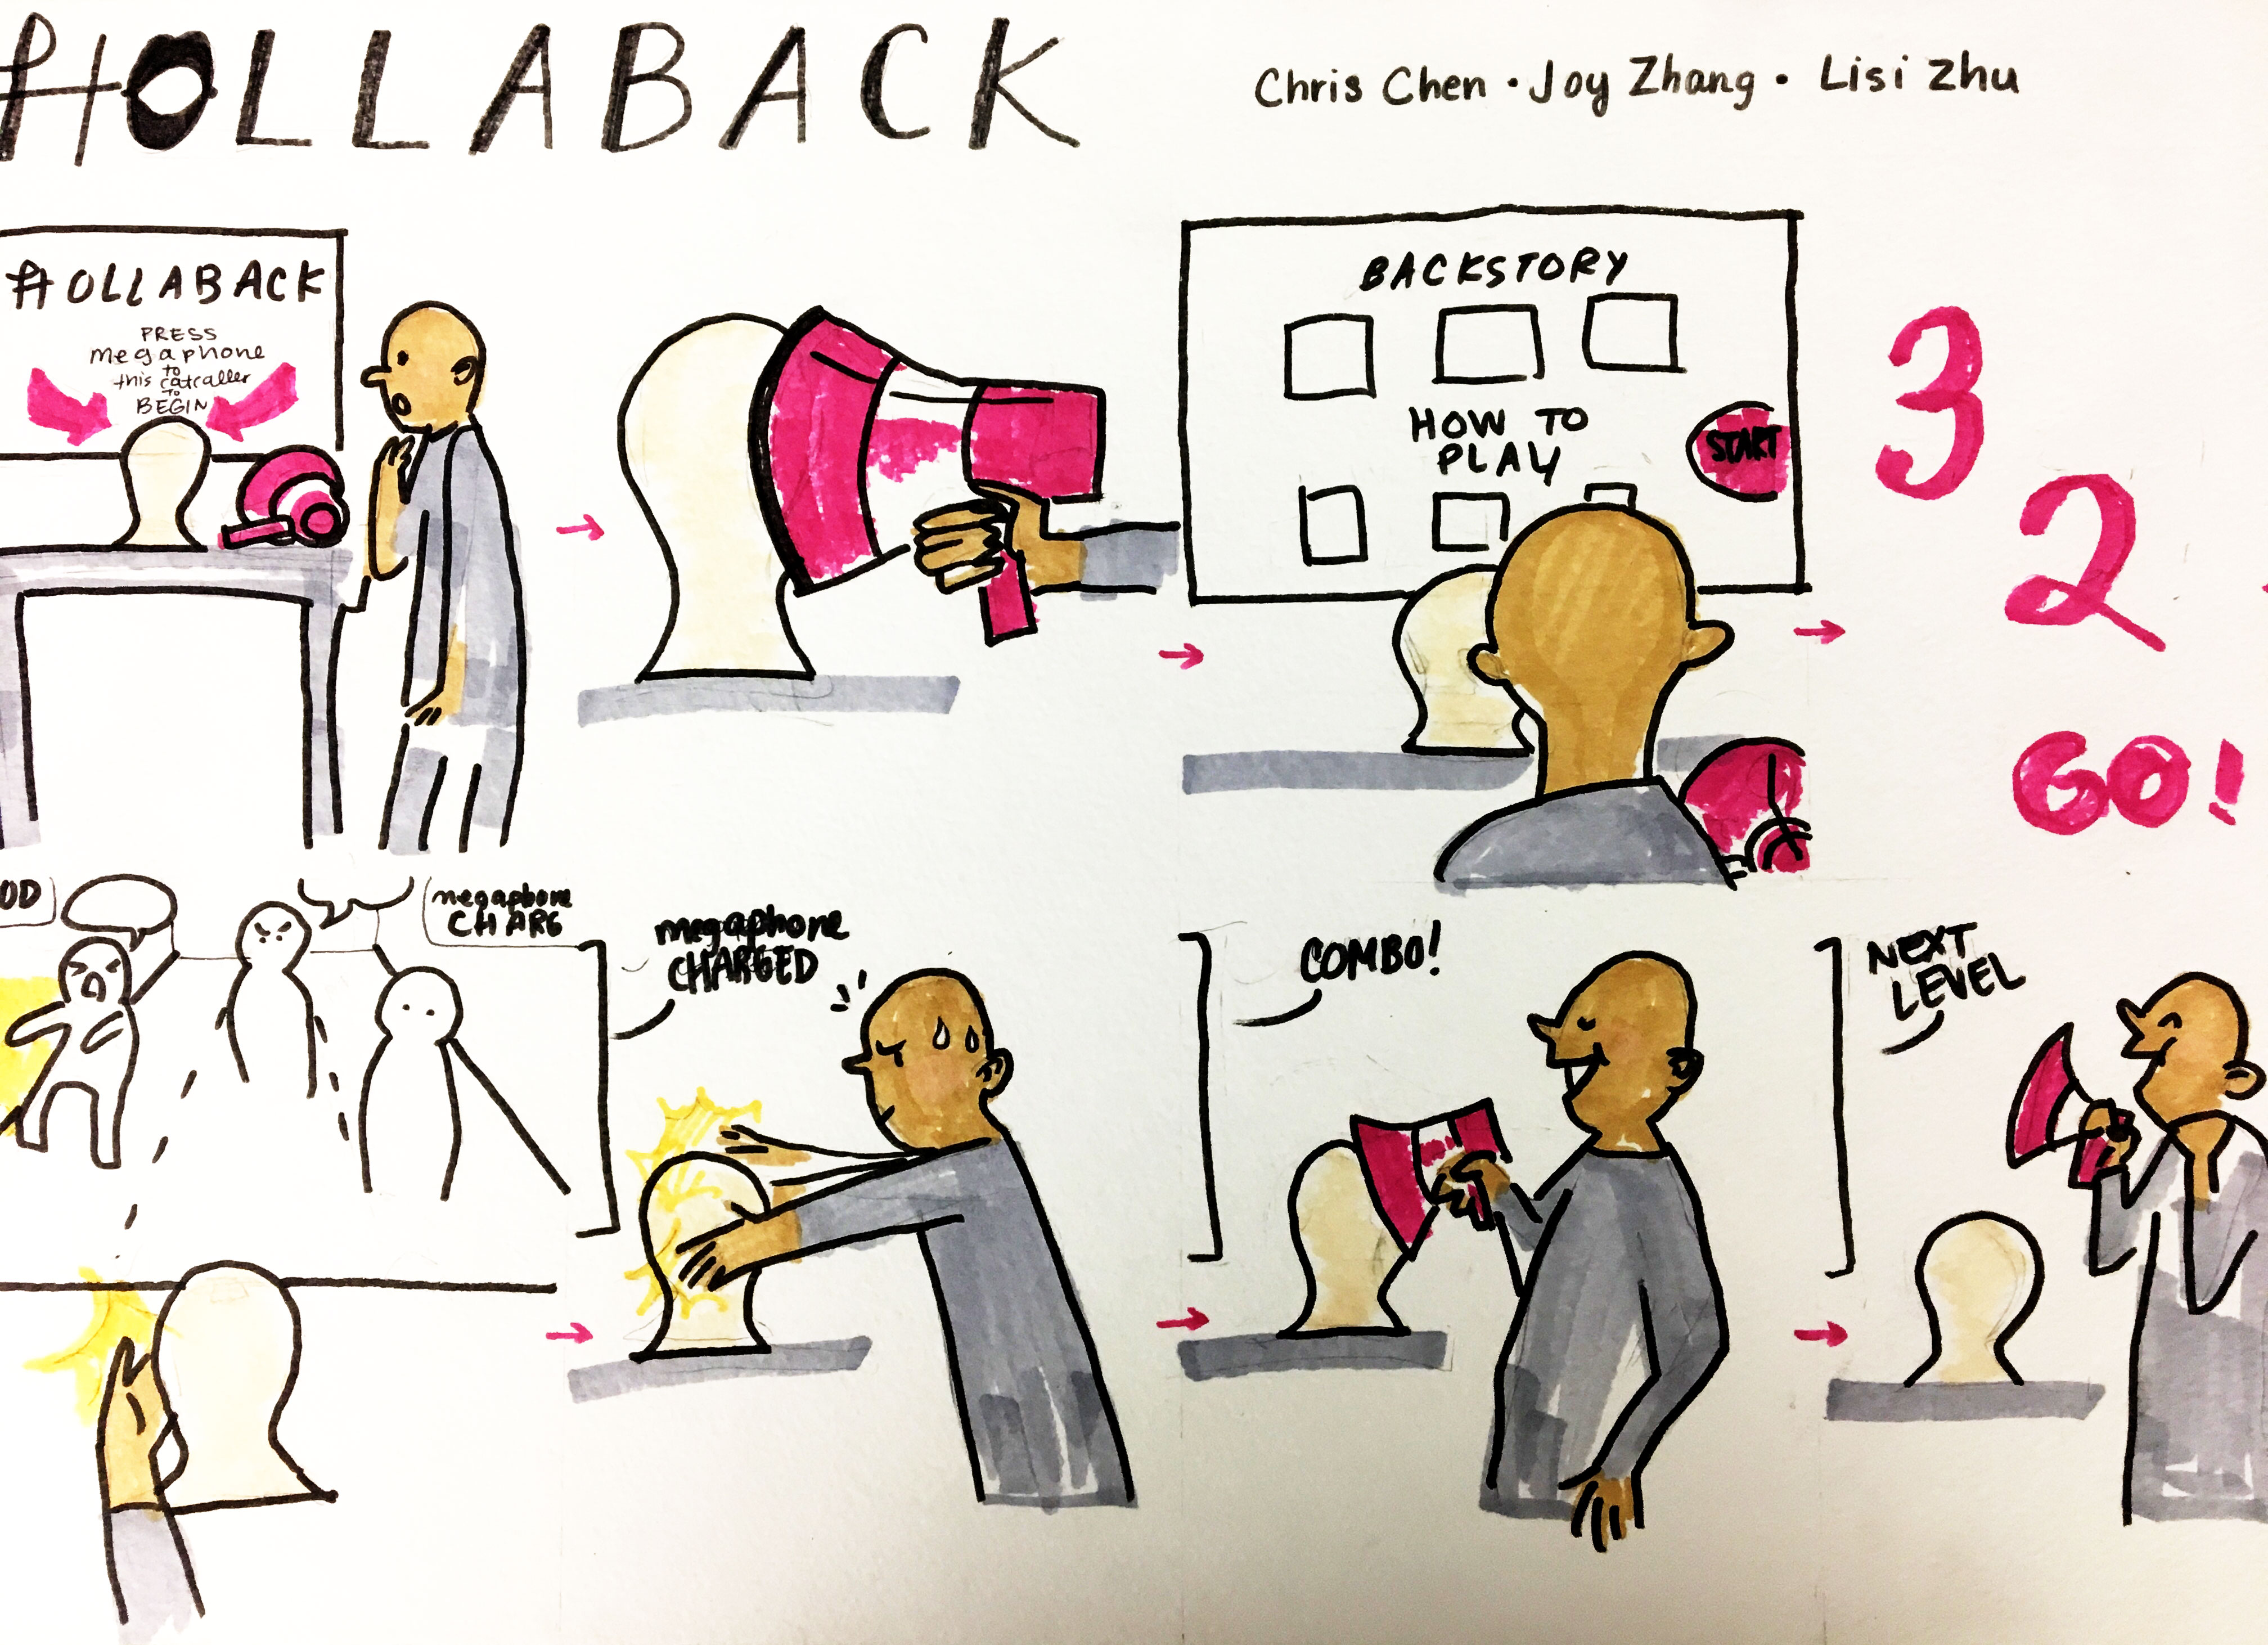 #HOLLABACK
Chris Chen • Joy Zhang • Lisi Zhu
#HOLLABACK
PRESS
megaphone
to
this catcaller
TO
BEGIN
BACKSTORY
HOW TO
PLAY
START
3
2
GO!
OD
megaphone
CHARG
megaphone
CHARGED
COMBO!
NEXT
LEVEL